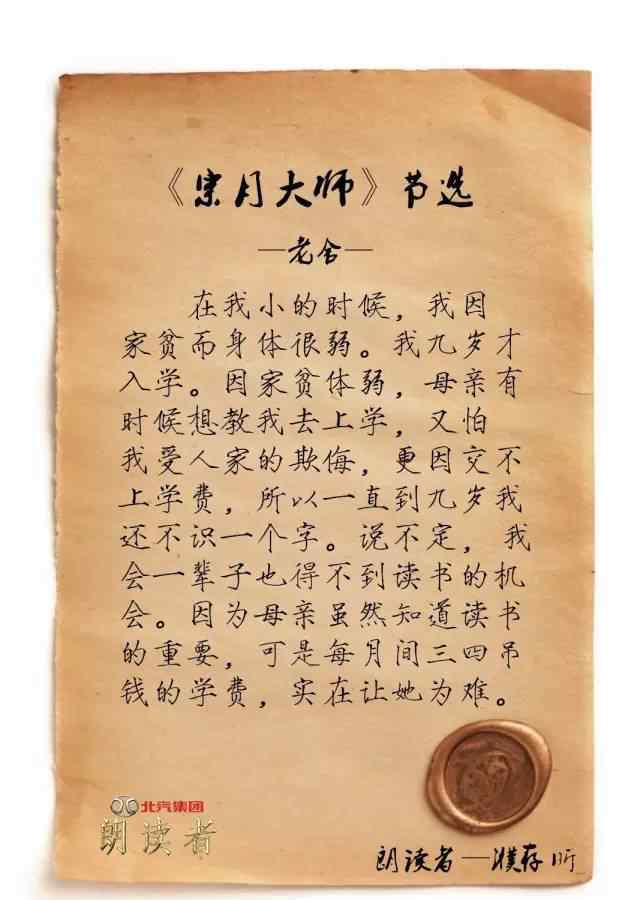 《宗月大师》节选
—老舍—
在我小的时候，我因
家贫而身体很弱。我九岁才
入学。因家贫体弱，母亲有
时候想教我去上学，又怕
我受人家的欺侮，更因交不
上学费，所以一直到九岁我
还不识一个字。说不定，我
会一辈子也得不到读书的机
会。因为母亲虽然知道读书
的重要，可是每月间三四吊
钱的学费，实在让她为难。
北汽集团
朗读者
朗读者—濮存昕